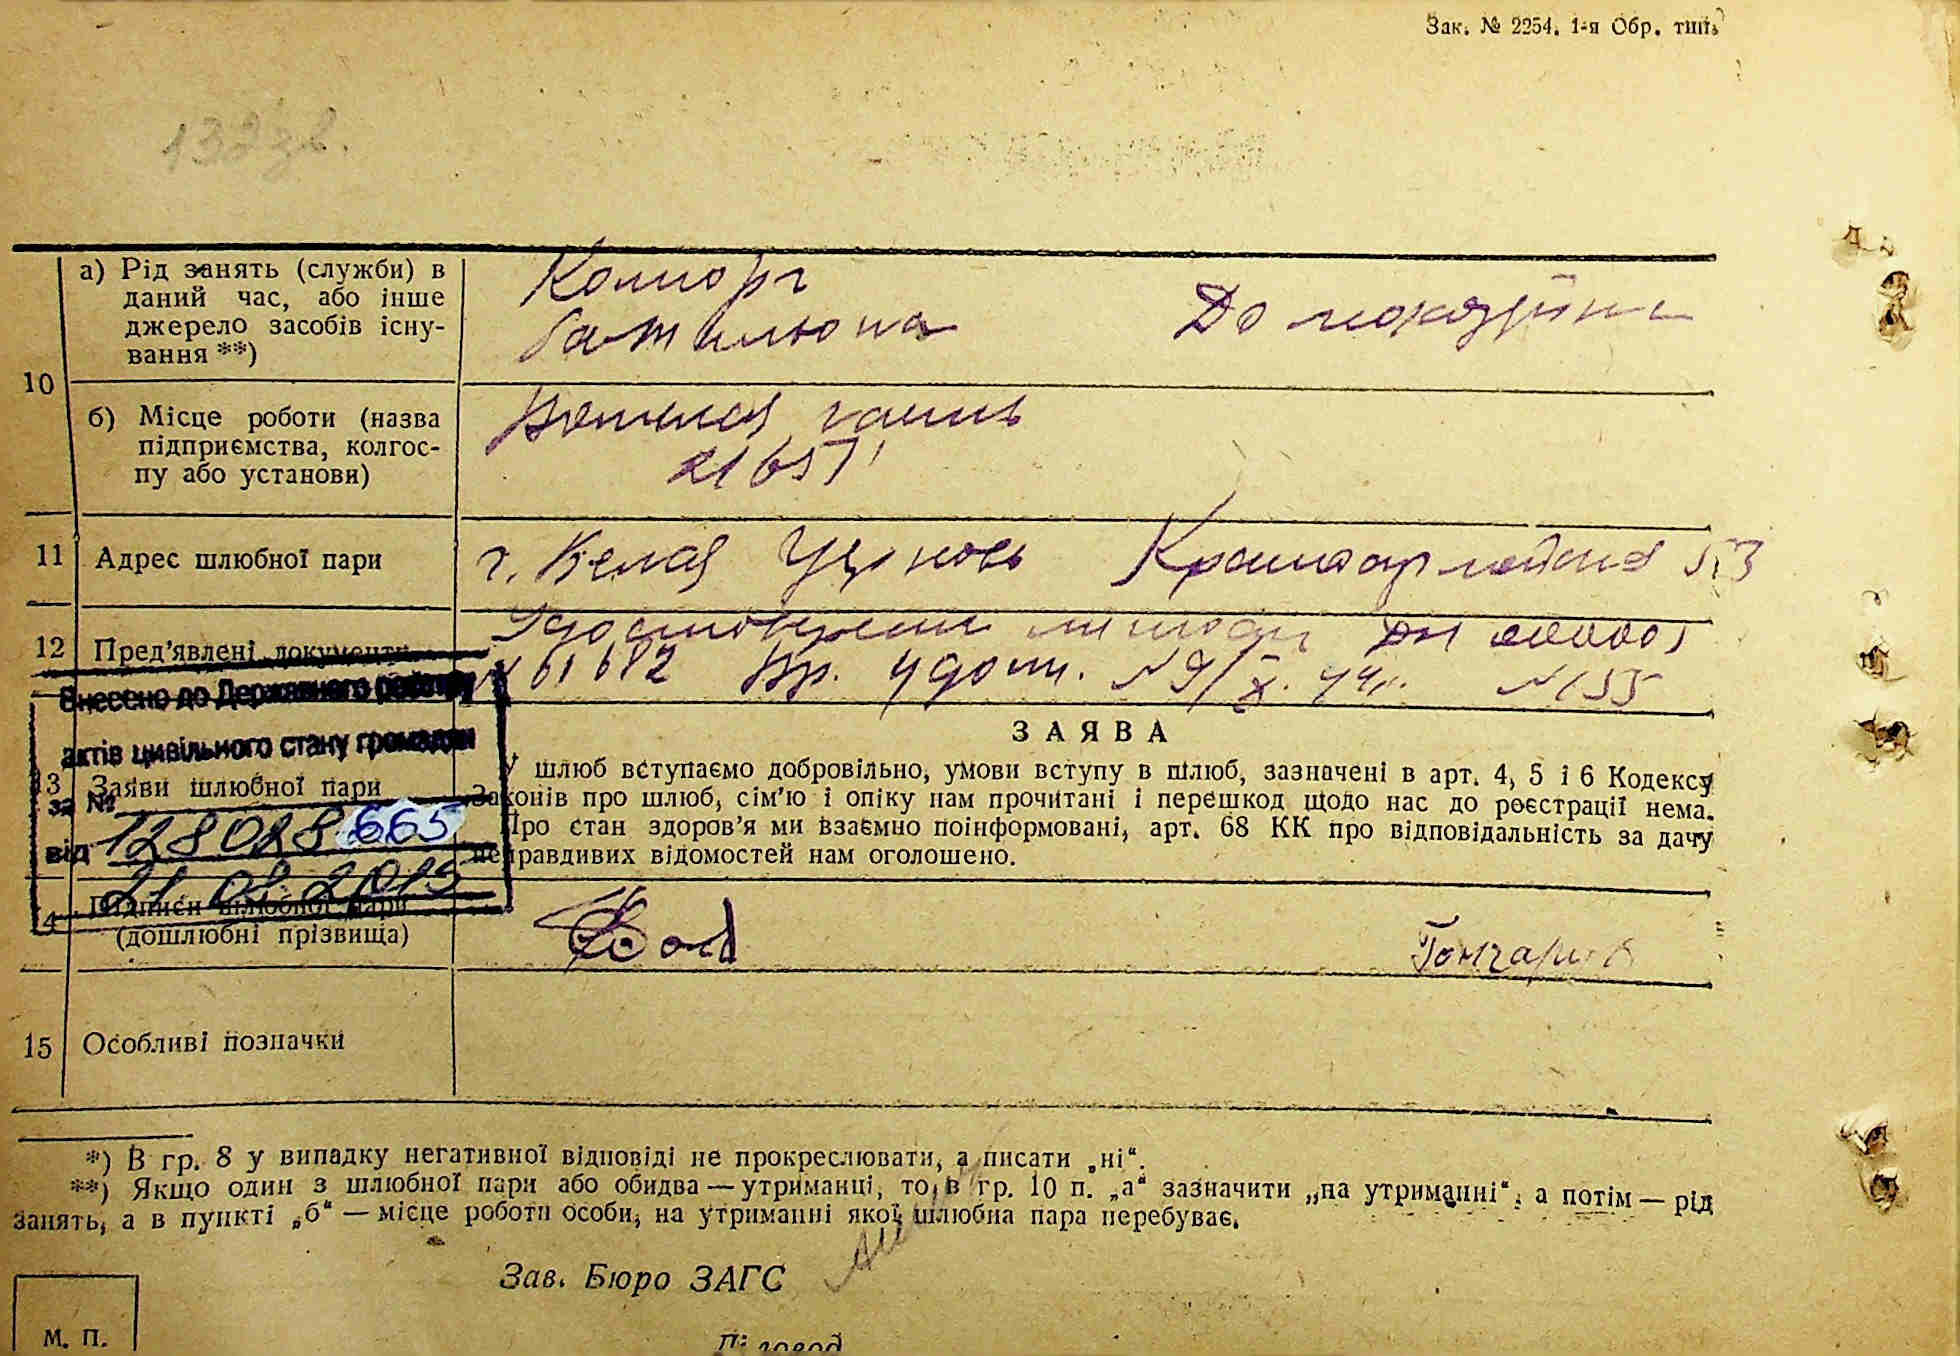 Зак. № 2254. 1-я Обр. тип.
132 зв.
10
а) Рід занять (служби) в
даний час, або інше
джерело засобів існу-
вання **)
Комсорг
батальона
Домохозяйка
б) Місце роботи (назва
підприємства, колгос-
пу або установи)
часть
21657
11
Адрес шлюбної пари
г. Белая Церковь Красноармейская 53
12
Пред'явлені документи
Удостоверение личности
№ 61682 Вр. удост. № 9/X. 44г. № 155
Внесено до Державного реєстру
актів цивільного стану громадян
за № 128028665
від
13
Заяви шлюбної пари
ЗАЯВА
У шлюб вступаємо добровільно, умови вступу в шлюб, зазначені в арт. 4, 5 і 6 Кодексу
Законів про шлюб, сім'ю і опіку нам прочитані і перешкод щодо нас до реєстрації нема.
Про стан здоров'я ми взаємно поінформовані, арт. 68 КК про відповідальність за дачу
неправдивих відомостей нам оголошено.
14
Підписи шлюбної пари
(дошлюбні прізвища)
15
Особливі позначки
*) В гр. 8 у випадку негативної відповіді не прокреслювати, а писати „ні“.
**) Якщо один з шлюбної пари або обидва — утриманці, то в гр. 10 п. „а“ зазначити „на утриманні“, а потім — рід
занять, а в пункті „б“ — місце роботи особи, на утриманні якої шлюбна пара перебуває.
Зав. Бюро ЗАГС
М. П.
Діловод